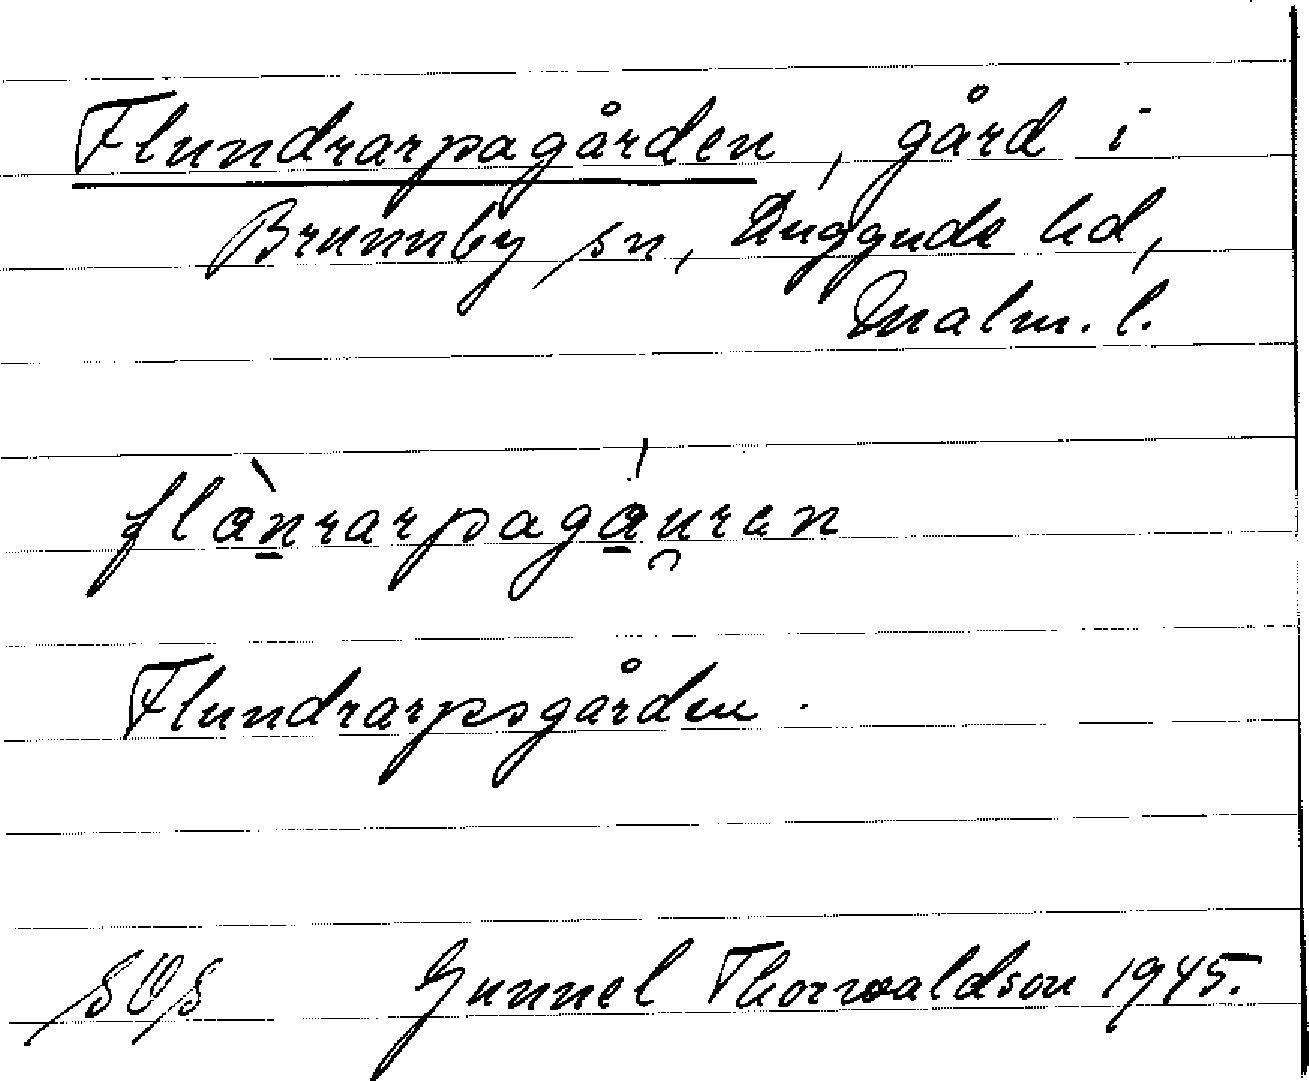 Flundrarpagården, gård i
Brunnby sn, Luggude hd,
Malm. l.
flànrarpagáu̯ran
Flundrarpsgården.
SOS Gunnel Thorwaldson 1945.